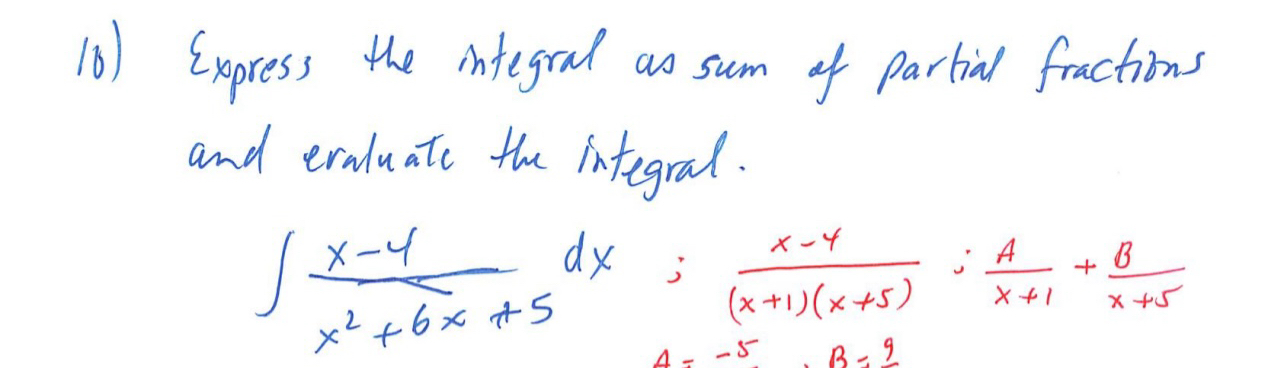 10) Express the integral as sum of partial fractions
and evaluate the integral.
∫ x-4 / x² + 6x + 5 dx ; x-4 / (x+1)(x+5) ; A / x+1 + B / x+5
A = -5 , B = 9